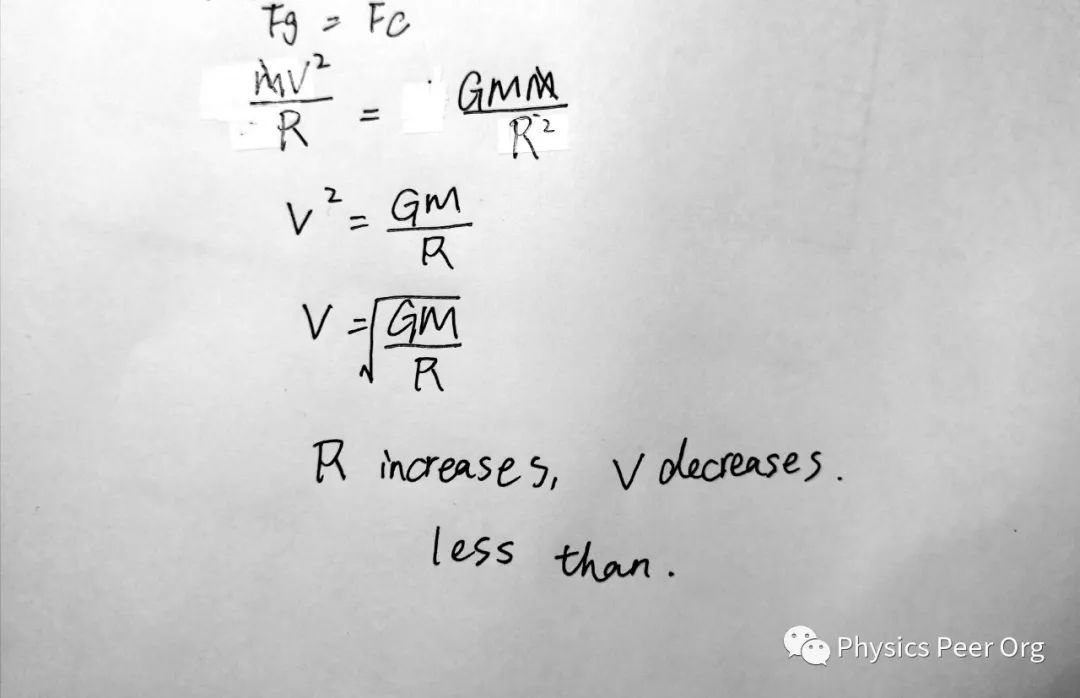 Fg = Fc
mv²/R = GMm/R²
V² = GM/R
V = √(GM/R)
R increases, V decreases.
less than.
Physics Peer Org